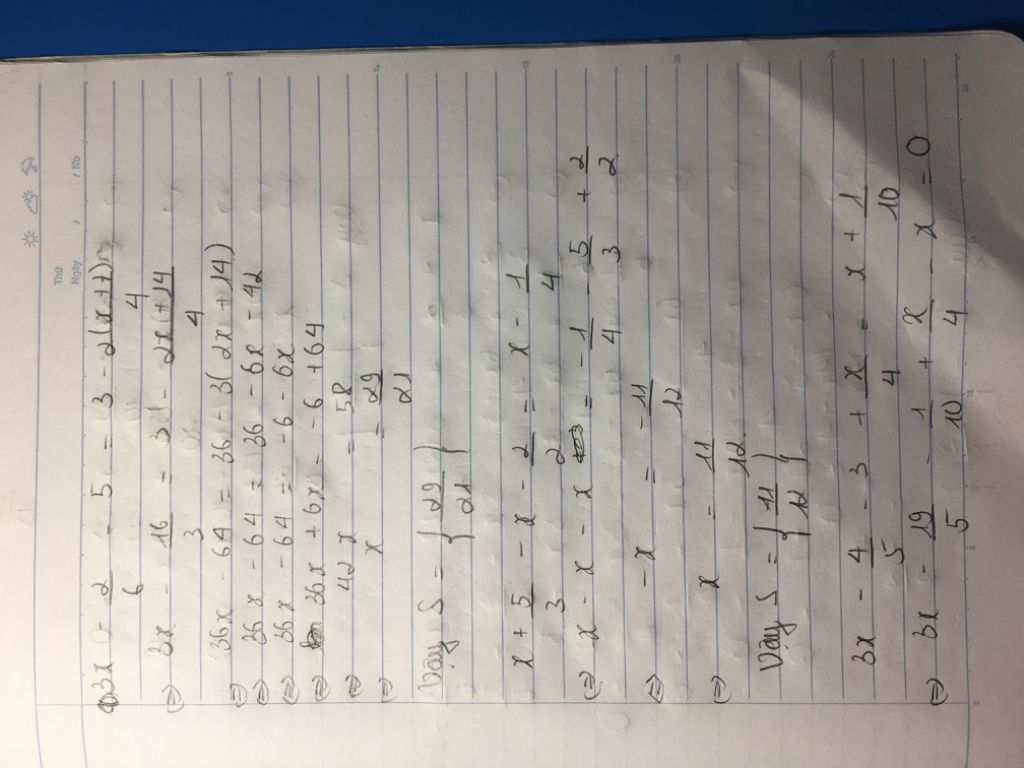 Thứ
Ngày / / No
3x - 2/6 - 5 = 3 - 2(x+7)/4
⇔ 3x - 16/3 = 3 - 2x+14/4
⇔ 36x - 64 = 36 - 3(2x+14)
⇔ 36x - 64 = 36 - 6x - 42
⇔ 36x - 64 = -6 - 6x
⇔ 36x + 6x = -6 + 64
⇔ 42x = 58
⇔ x = 29/21
Vậy S = {29/21}
x + 5/3 - x - 2/2 = x - 1/4
⇔ x - x - x = -1/4 - 5/3 + 2/2
⇔ -x = -11/12
⇔ x = 11/12
Vậy S = {11/12}
3x - 4/5 - 3 + x/4 = x + 1/10
⇔ 3x - 19/5 - 1/10 + x/4 - x = 0